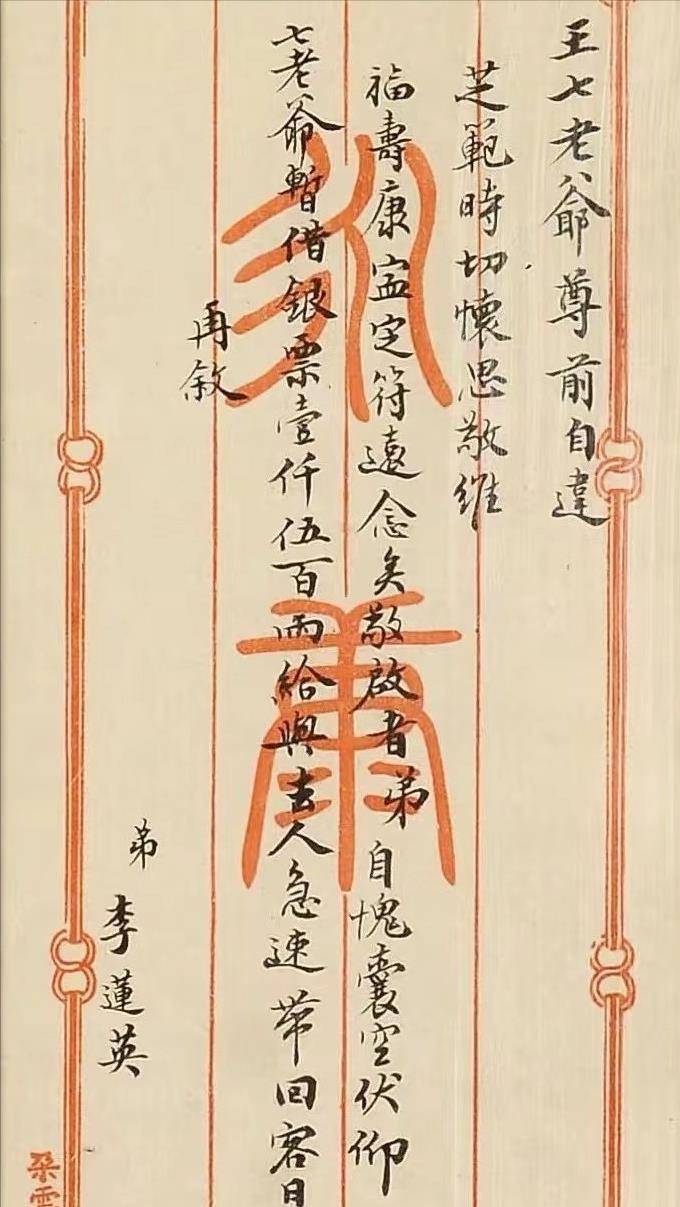 王七老爺尊前自違
芝範時切懷思敬維
福壽康寍定符遠念矣敬啟者弟自愧囊空伏仰
七老爺暫借銀票壹仟伍百兩給與去人急速帶回容日
再敘
弟
李蓮英
朵雲